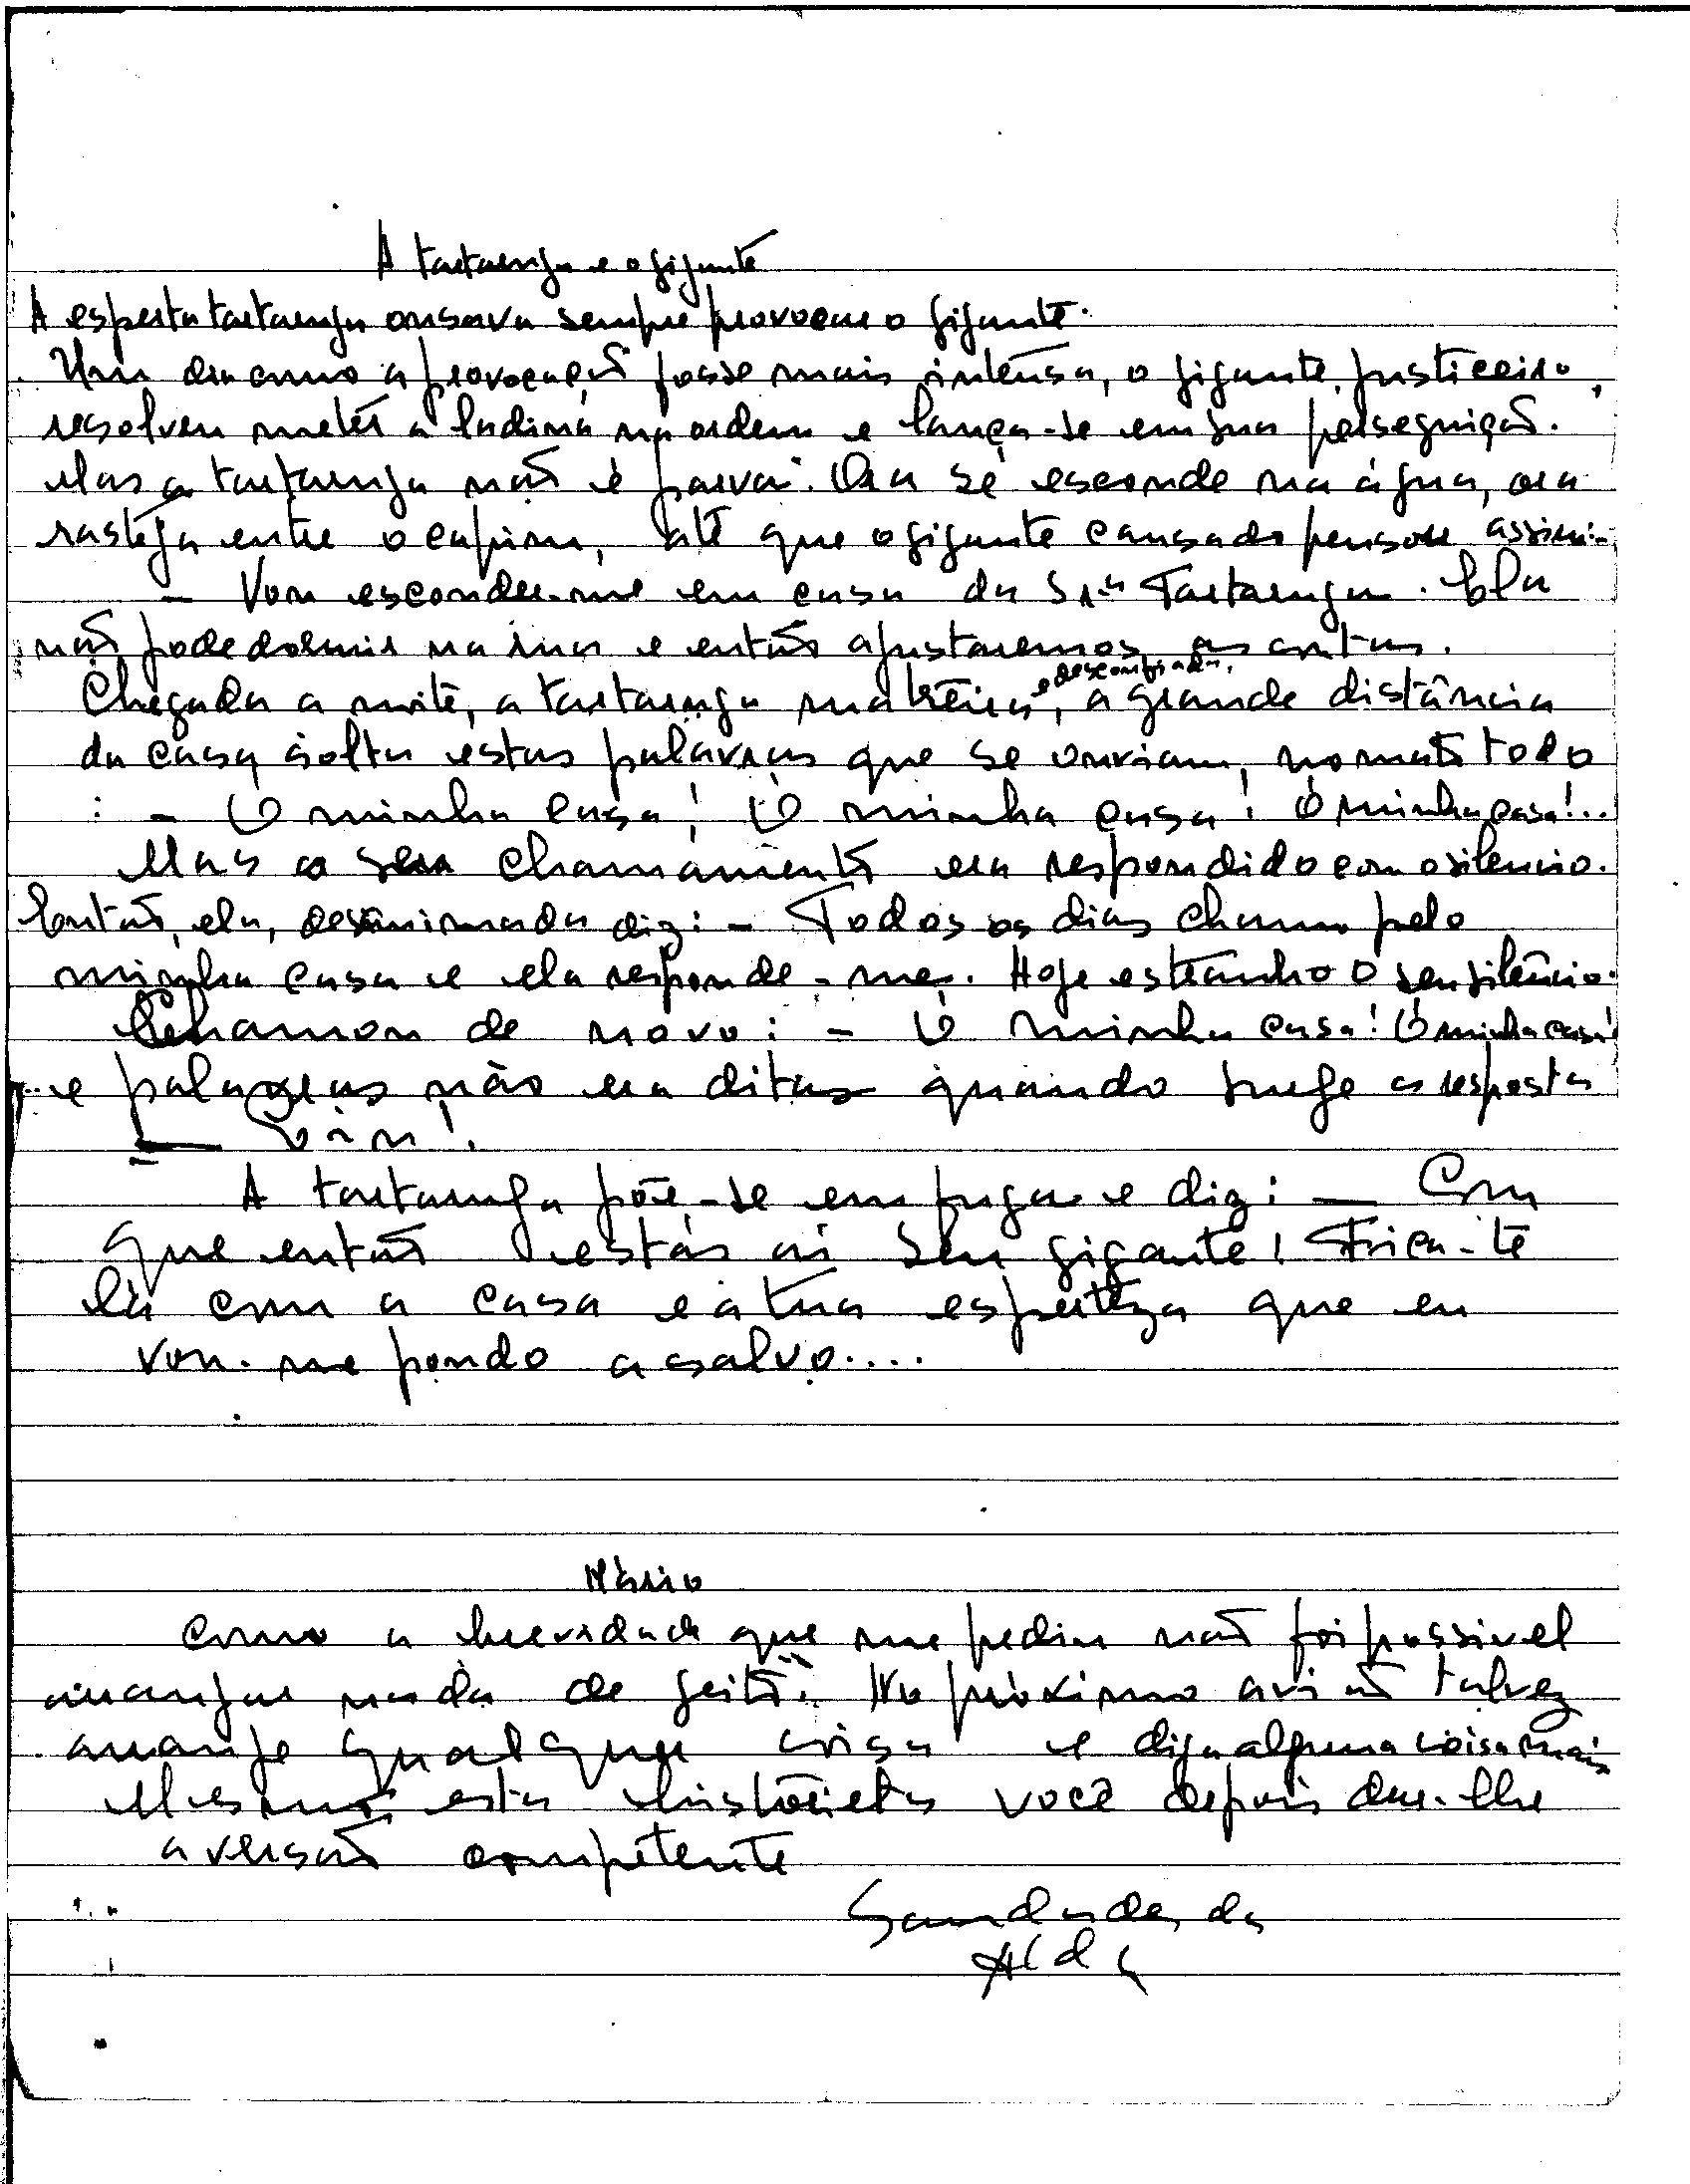 A tartaruga e o gigante
A esperta tartaruga ousava sempre provocar o gigante.
Um dia como a provocação fosse mais intensa, o gigante, justiceiro,
resolveu meter a ladina na ordem e lança-se em sua perseguição.
Mas a tartaruga não é parva. Ora se esconde na água, ora
rasteja entre o capim, até que o gigante cansado pensou assim:
- Vou esconder-me em casa da Srª Tartaruga. Ela
não pode dormir na rua e então ajustaremos as contas.
Chegada a noite, a tartaruga matreira e desconfiada, a grande distância
da casa solta estas palavras que se ouviam, no mato todo
: - Ó minha casa! Ó minha casa! Ó minha casa!...
Mas o seu chamamento era respondido com o silencio.
Então, ela, desanimada diz: - Todos os dias chamo pelo
minha casa e ela responde-me. Hoje estranho o seu silêncio.
Chamou de novo: - Ó minha casa! Ó minha casa!
e palavras não era ditas quando surge a resposta
-
A tartaruga põe-se em fuga e diz: - Com
que então estás aí seu gigante! Fica-te
lá com a casa e a tua esperteza que eu
vou-me pondo a salvo....
Mário
Como a brevidade que me pediu não foi possivel
arranjar nada de jeito. No próximo avião talvez
arranje qualquer coisa e diga alguma coisa mais
Mesmo esta historieta você depois dar-lhe
a versão competente
Saudades da
Alda